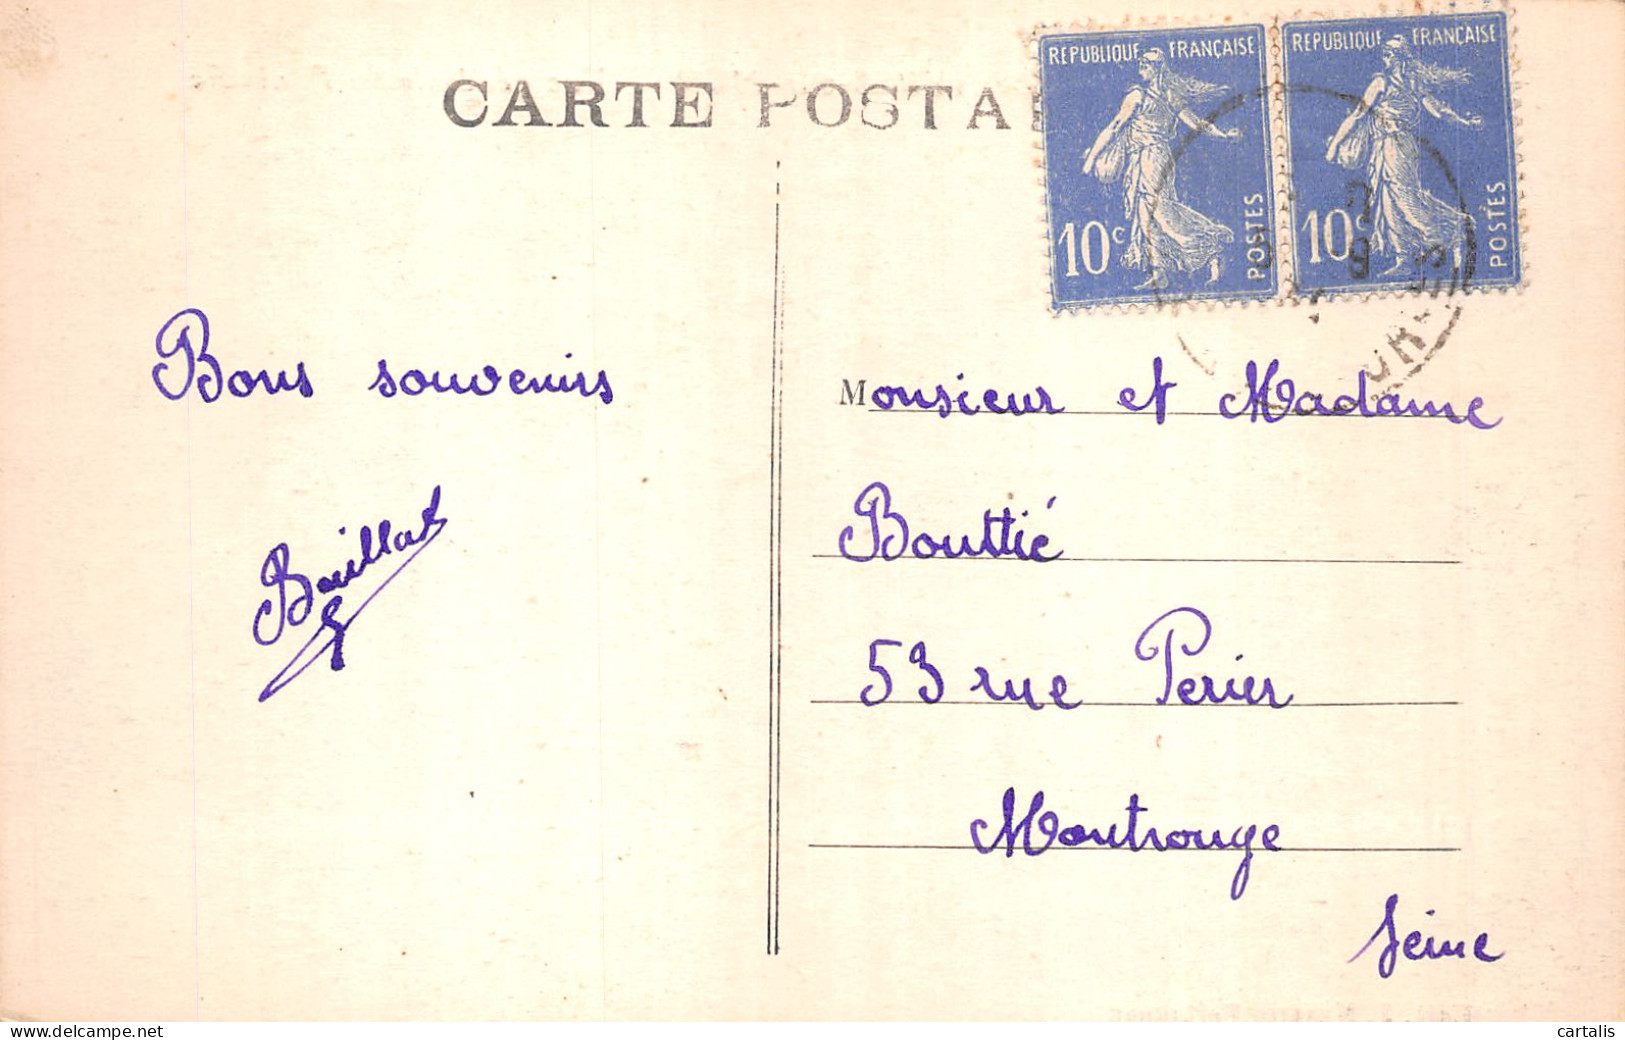 CARTE POSTA
REPUBLIQUE FRANÇAISE
10c
POSTES
REPUBLIQUE FRANÇAISE
10c
POSTES
Bons souvenirs
Bouillat
Monsieur et Madame
Bouttié
53 rue Perier
Montrouge
Seine
delcampe.net
cartalis